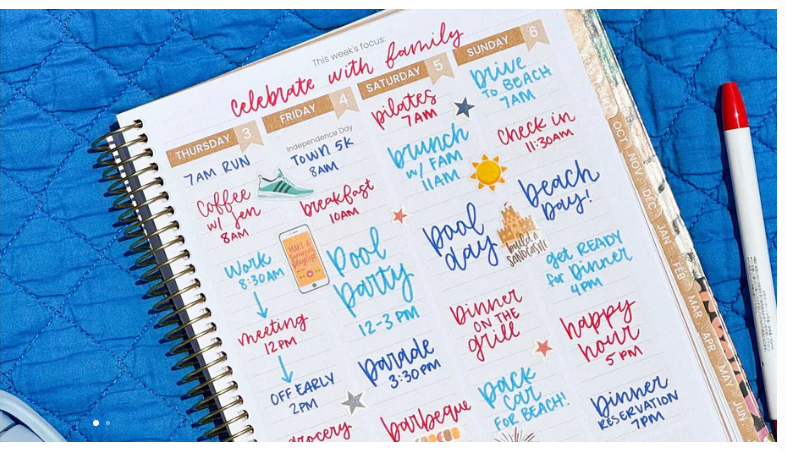 This week's focus:
celebrate with family
THURSDAY 3
7AM RUN
Coffee
w/ Jen
8AM
Work
8:30AM
meeting
12PM
OFF EARLY
2PM
grocery
FRIDAY 4
Independence Day
TOWN 5K
8AM
breakfast
10AM
POOL
PARTY
12-3 PM
parade
3:30PM
barbeque
SATURDAY 5
pilates
7AM
brunch
w/ FAM
11AM
pool
day
Dinner
ON THE
grill
pack
car
FOR BEACH!
SUNDAY 6
Drive
TO BEACH
7AM
check in
11:30AM
beach
Day!
build a
SANDCASTLE
get READY
For Dinner
4PM
happy
hour
5PM
Dinner
RESERVATION
7PM
OCT
NOV
DEC
JAN
FEB
MAR
APR
MAY
JUN